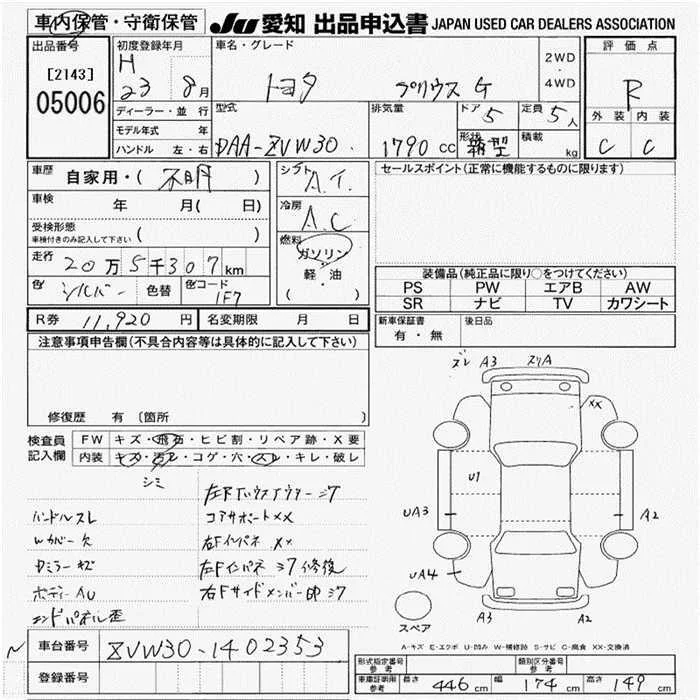 車内保管・守衛保管 JU 愛知 出品申込書 JAPAN USED CAR DEALERS ASSOCIATION
出品番号 [2143] 05006
初度登録年月 H 23 8月
車名・グレード トヨタ プリウス G
2WD・4WD
評価点 R
外装 内装
C C
ディーラー・並行
モデル年式 年
ハンドル 左・右
型式 DAA-ZVW30
排気量 1790 cc
ドア 5
定員 5人
形状 箱型
積載 kg
車歴 自家用・( 不明 )
シフト A.T.
車検 年 月( 日)
冷房 A.C
受検形態 車検付きのみ記入して下さい ( )
燃料 ガソリン・軽・油 ( )
走行 20万5千307km
色 シルバー 色替 色コード 1F7
R券 11,920 円 名変期限 月 日
セールスポイント(正常に機能するものに限ります)
装備品(純正品に限り○をつけてください)
PS PW エアB AW
SR ナビ TV カワシート
新車保証書 有・無 後日品
注意事項申告欄(不具合内容等は具体的に記入して下さい)
修復歴 有 〔箇所
検査員記入欄
FW キズ・飛石・ヒビ割・リペア跡・X要
内装 キズ・汚レ・コゲ・穴・スレ・キレ・破レ
シミ
ハンドルスレ コアサポートXX
Wカバー欠 右Fインパネ XX
ボディーAU 右Fサイドメンバー
エンドパネル歪
ズレ A3 スリA
XX
U1
UA3 A2
UA4
A3 A2
スペア
A-キズ E-エクボ U-凹み W-補修跡 S-サビ C-腐食 XX-交換済
車台番号 ZVW30-1402353
登録番号
形式指定番号 参考 類別区分番号 参考
車庫証明用 参考 長さ 446cm 幅 174cm 高さ 149cm